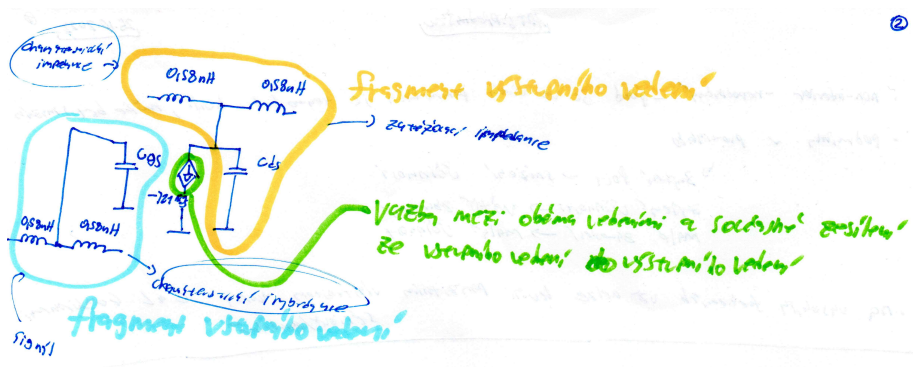 ②
charakteristická
impedance
0,58nH
0,58nH
fragment výstupního vedení
zatěžovací impedance
CGS
Cds
vazba mezi oběma vedeními a současně zesílení
ze vstupního vedení do výstupního vedení
0,58nH
0,58nH
charakteristická impedance
fragment vstupního vedení
signál